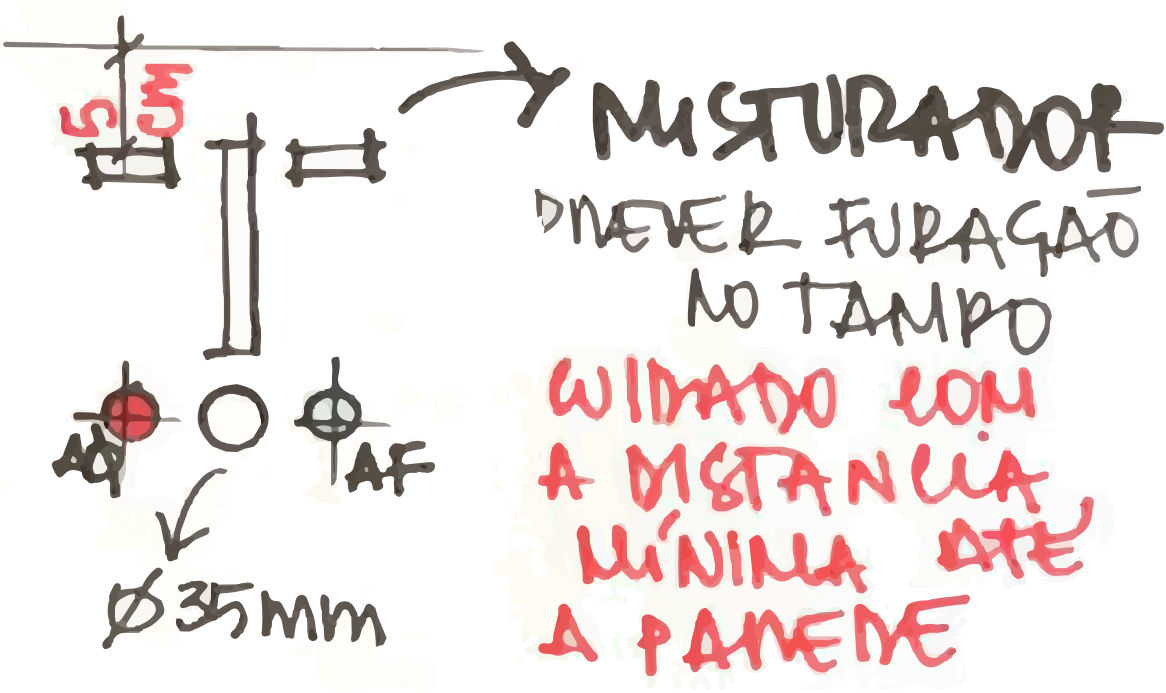 5 CM
MISTURADOR
PREVER FURAÇÃO
NO TAMPO
CUIDADO COM
A DISTANCIA
MÍNIMA ATÉ
A PAREDE
AQ
AF
Ø35mm